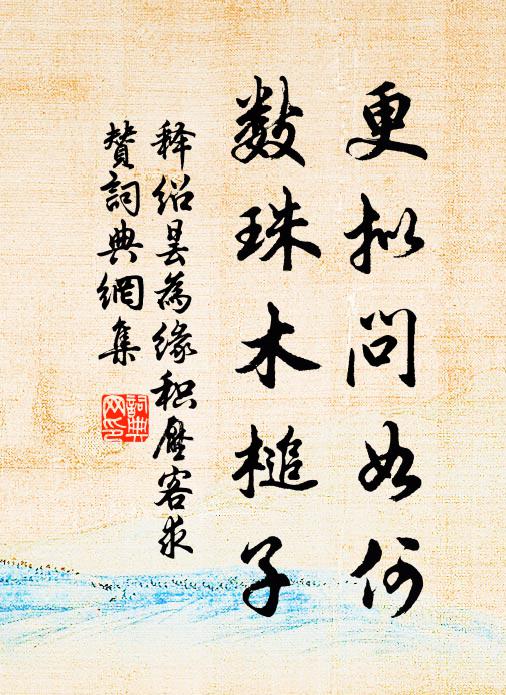 更拟问如何
数珠木槌子
释绍昙为缘积历客求
赞词典网集
詞典
网印